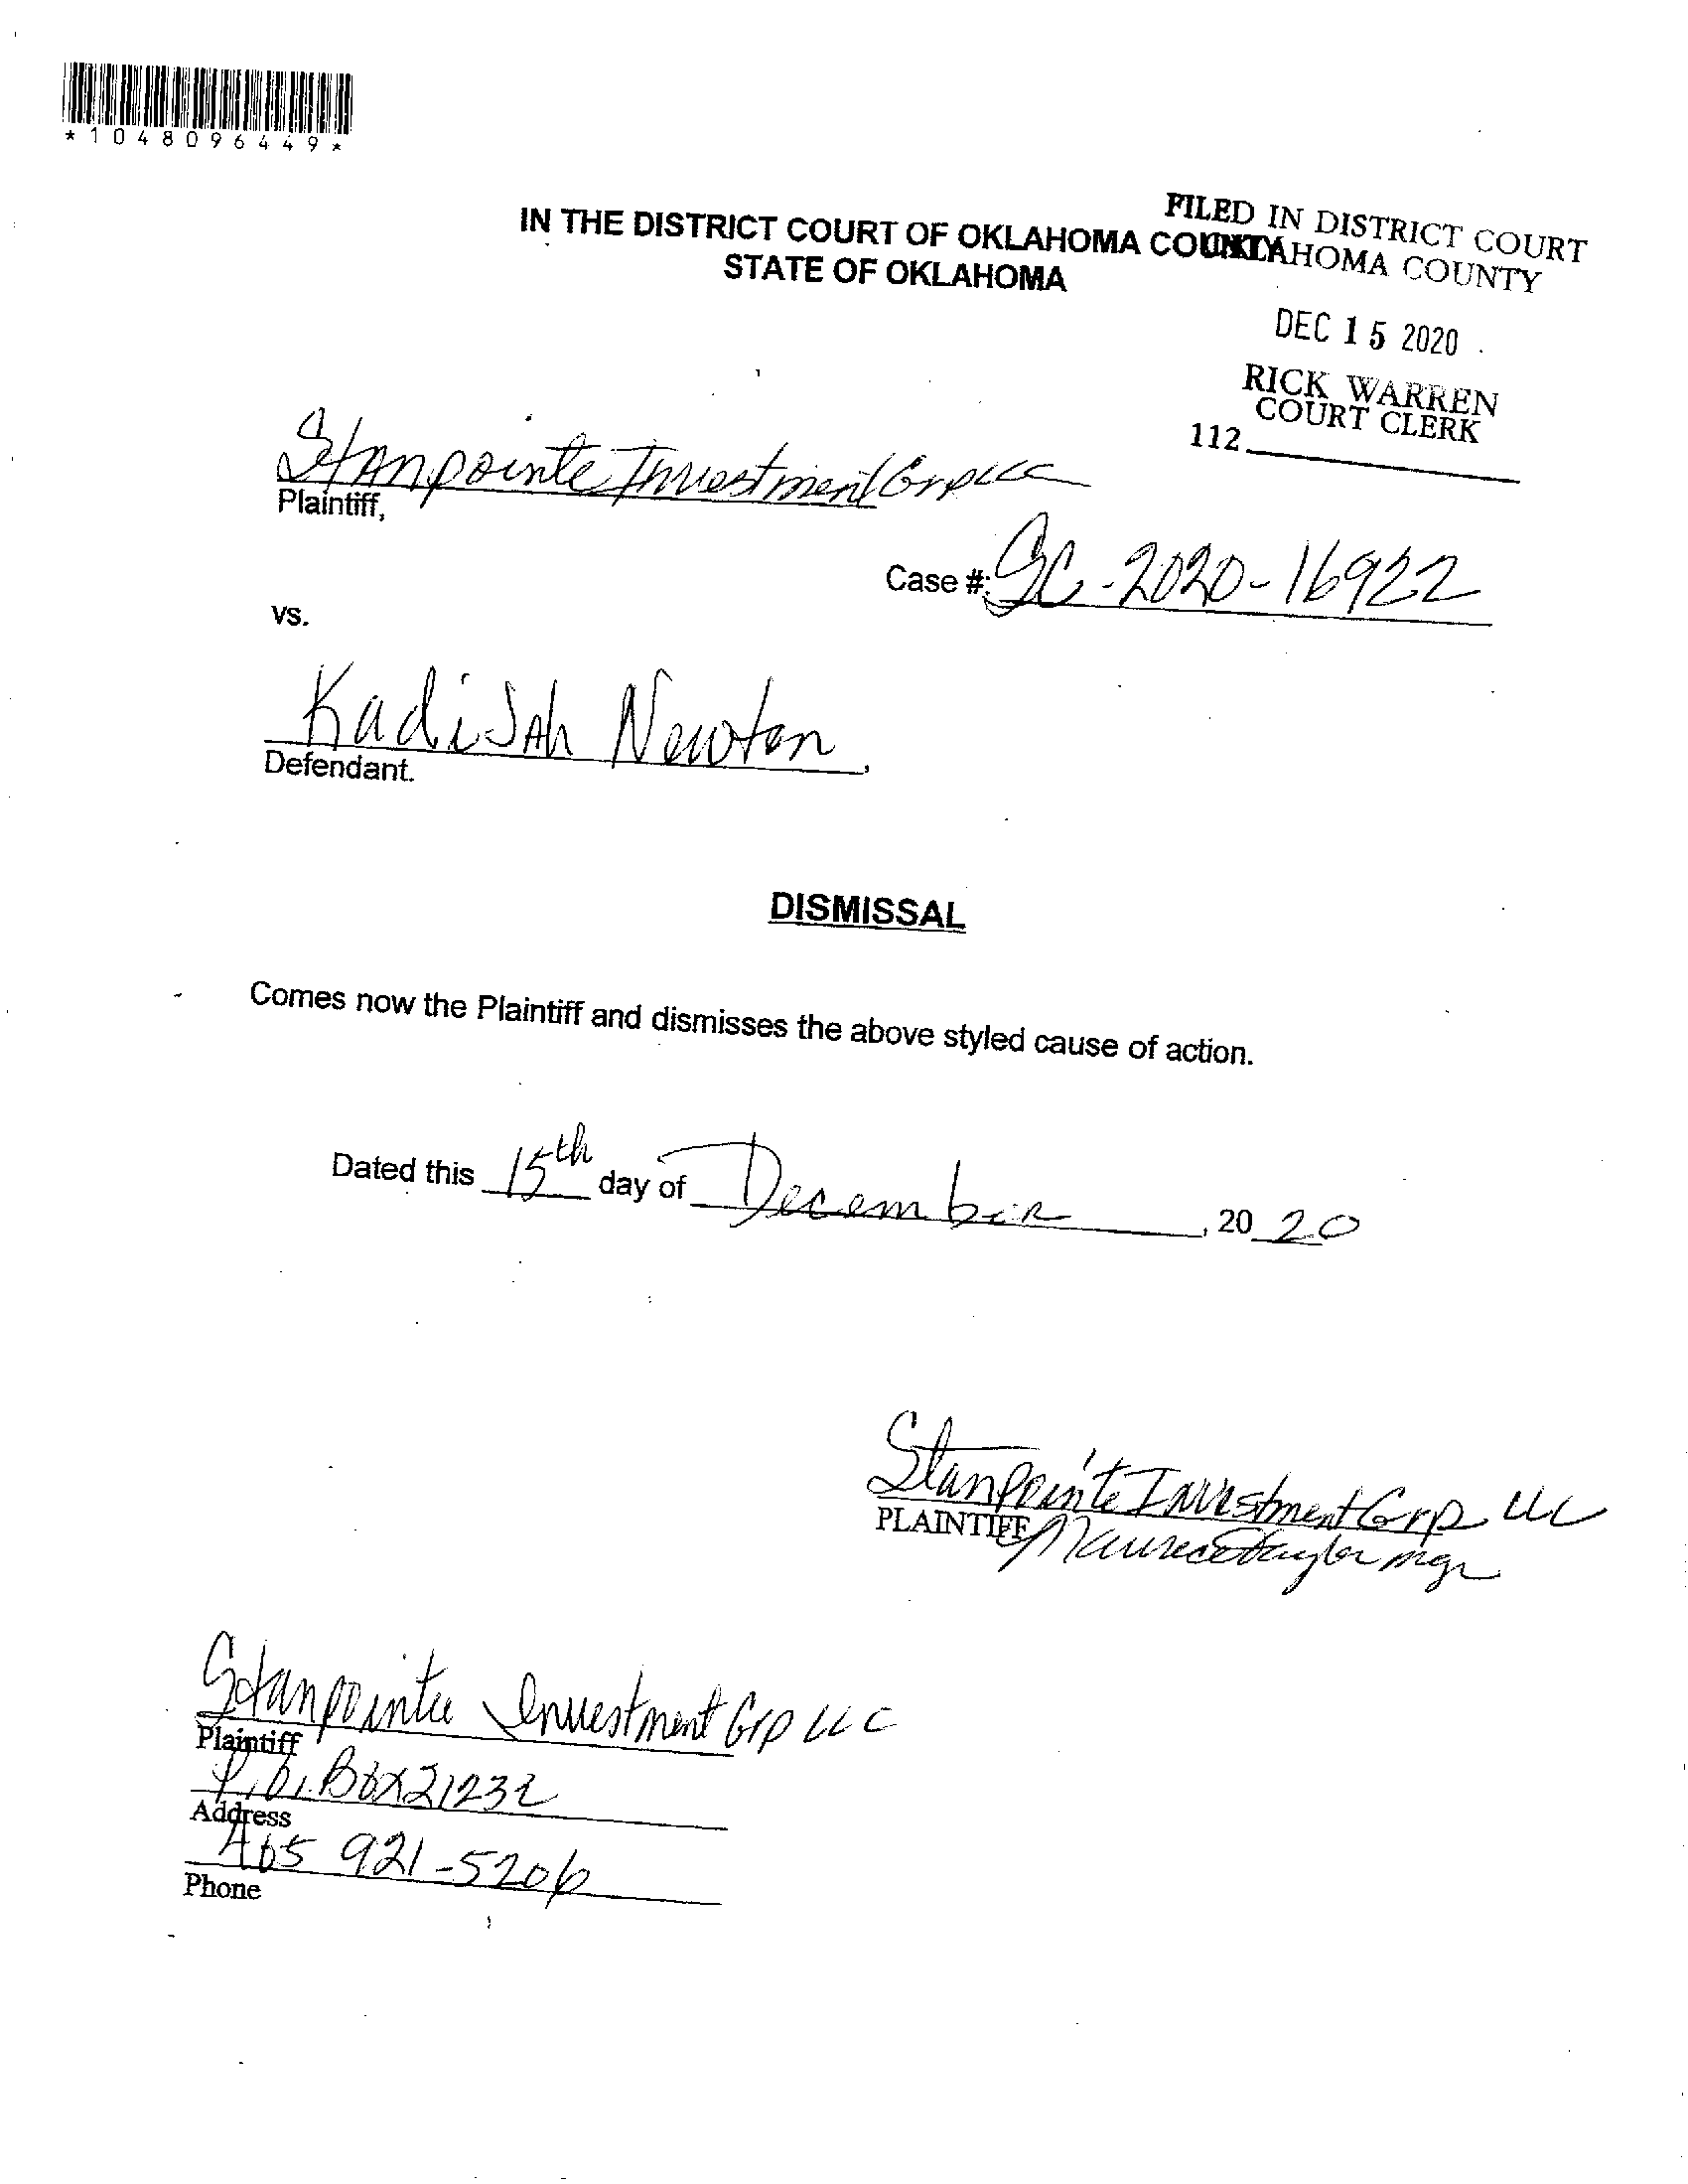 *1048096449*
FILED IN DISTRICT COURT
OKLAHOMA COUNTY
IN THE DISTRICT COURT OF OKLAHOMA COUNTY
STATE OF OKLAHOMA
DEC 15 2020
RICK WARREN
COURT CLERK
112
Stanpointe Investment Grp LLC
Plaintiff,
Case #: SC-2020-16922
vs.
Kadijah Newton,
Defendant.
DISMISSAL
Comes now the Plaintiff and dismisses the above styled cause of action.
Dated this 15th day of December, 2020
Stanpointe Investment Grp LLC
PLAINTIFF
Taylor mgr
Stanpointe Investment Grp LLC
Plaintiff
P.O. Box 21232
Address
405 921-5206
Phone